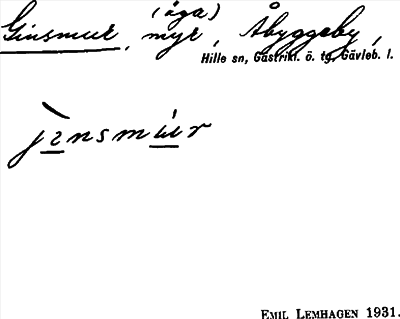 (äga)
Ginsmur, myr, Åbyggeby,
Hille sn, Gästrikl. ö. tg, Gävleb. l.
EMIL LEMHAGEN 1931.